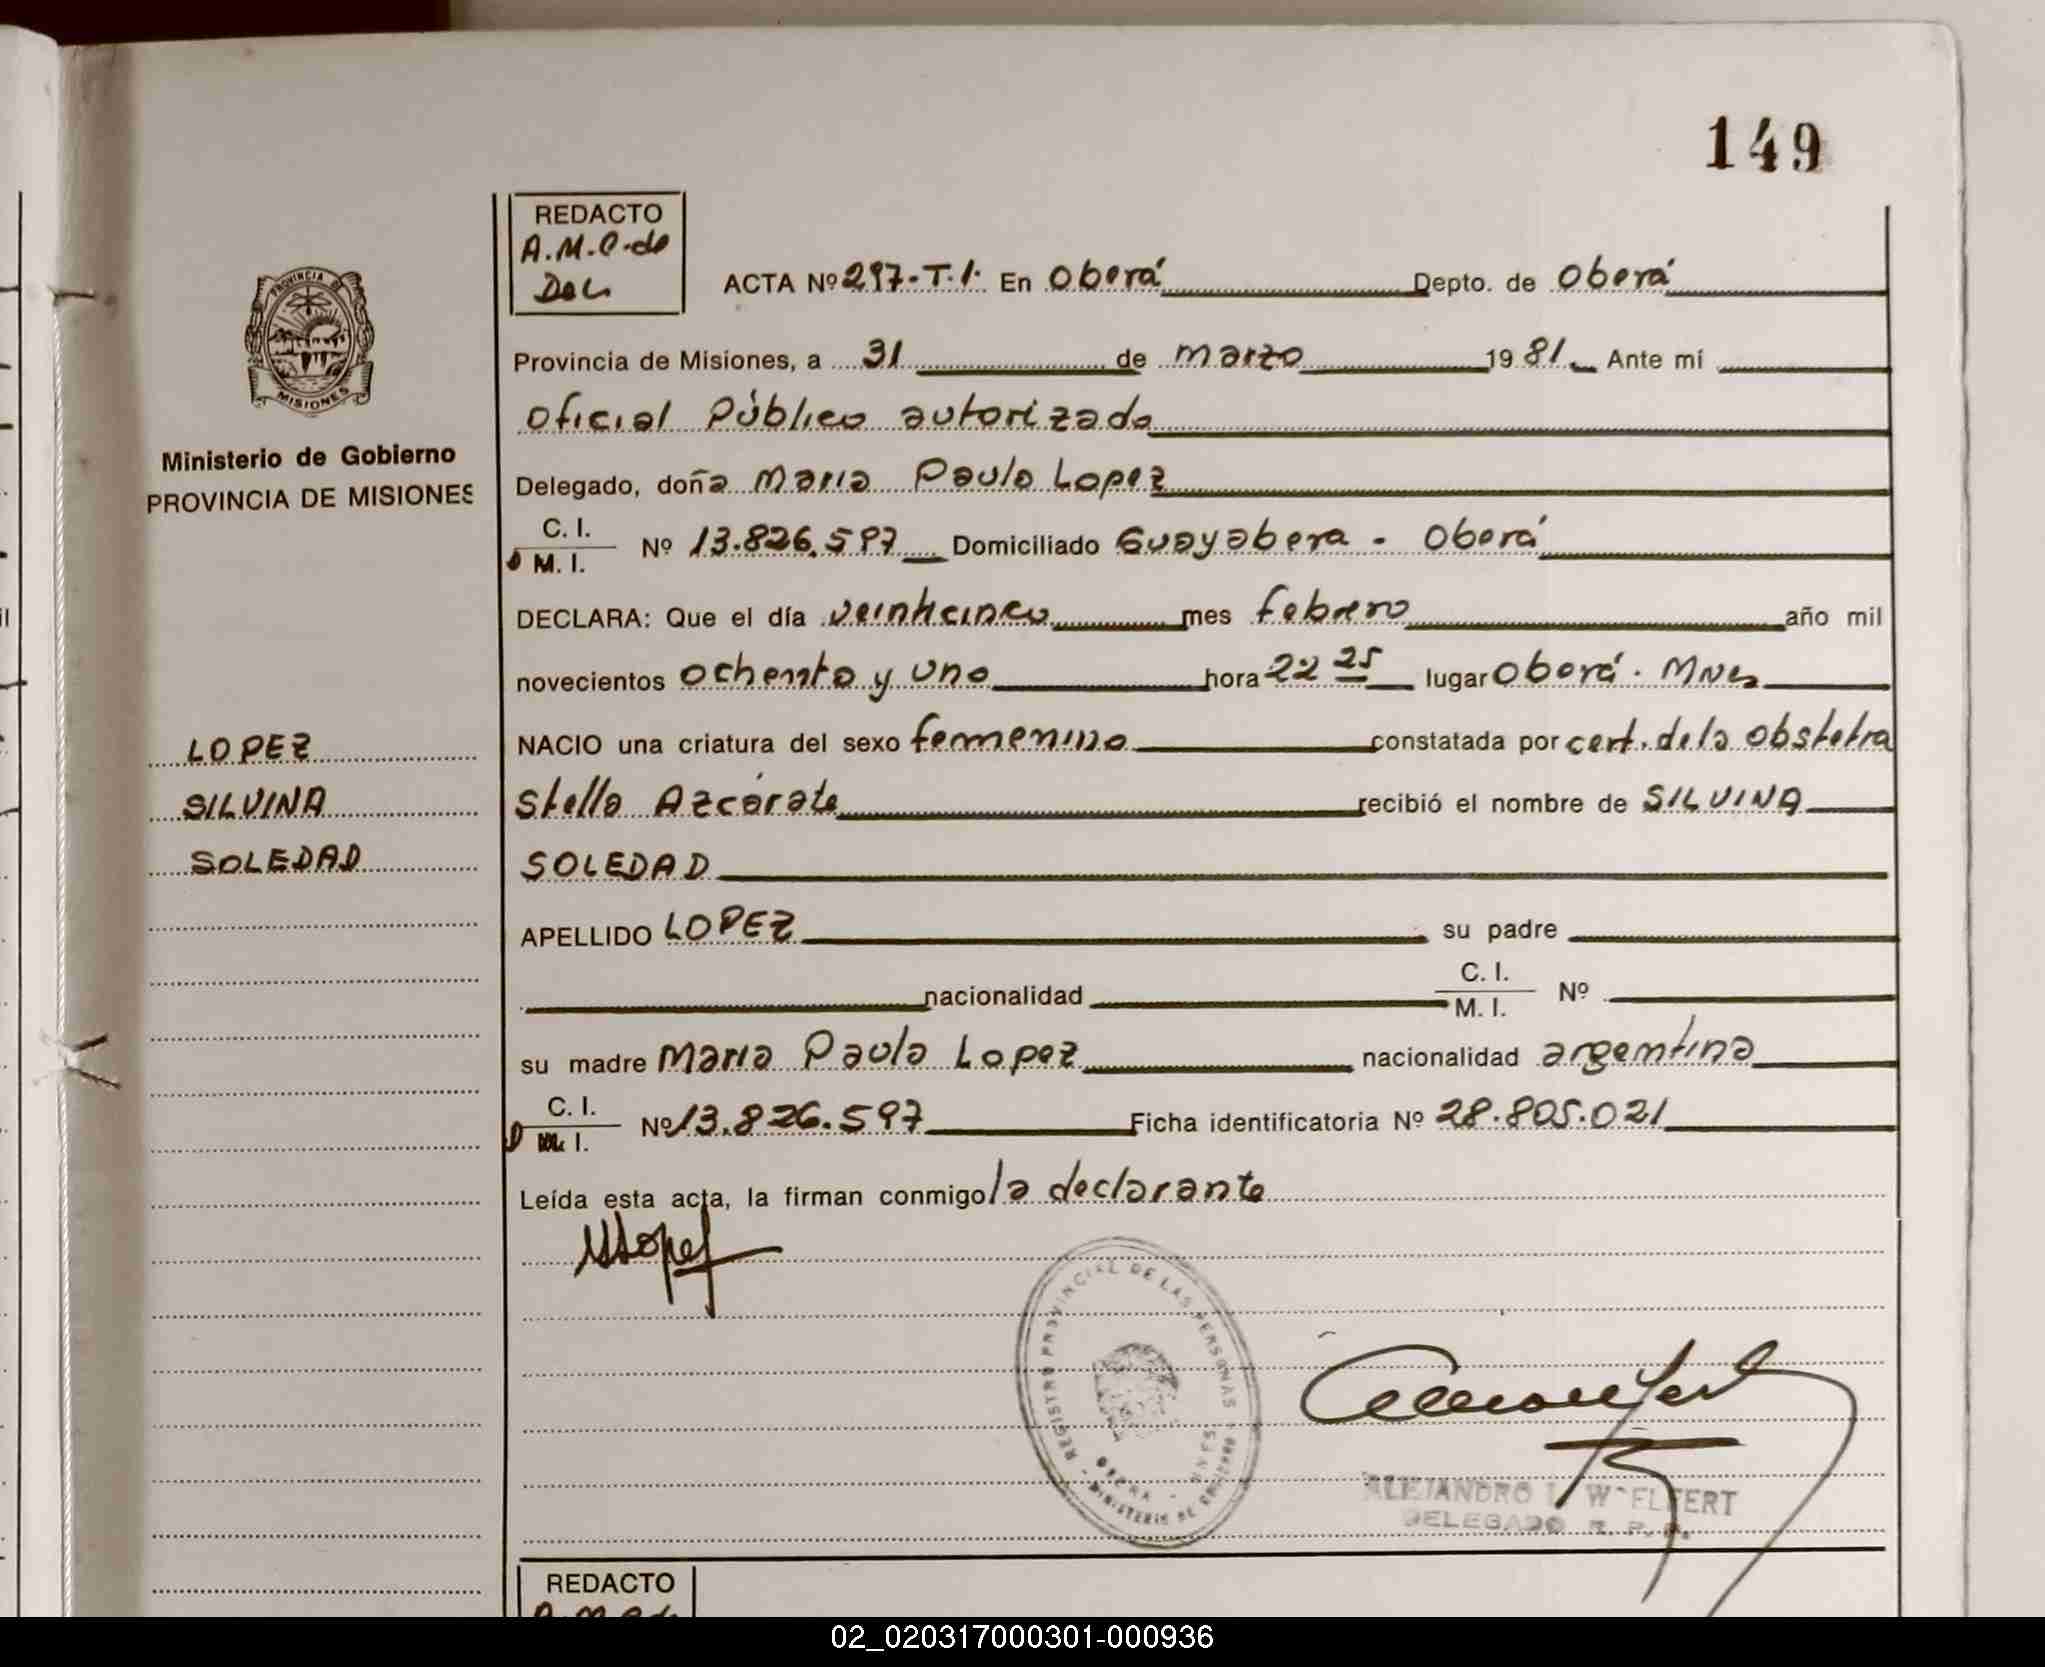 149
REDACTO
A.M.C. de
ACTA Nº 297-T.I. En Oberá Depto. de Oberá
PROVINCIA DE
MISIONES
Provincia de Misiones, a 31 de marzo 1981. Ante mí
Oficial Público autorizado
Ministerio de Gobierno
PROVINCIA DE MISIONES
Delegado, doña Maria Paula Lopez
C. I.
M. I. Nº 13.826.597 Domiciliado Guayabera - Oberá
DECLARA: Que el día veinticinco mes febrero año mil
novecientos ochenta y uno hora 22 25 lugar Oberá. Mnes
LOPEZ
NACIO una criatura del sexo femenino constatada por cert. de la obstetra
SILVINA
Stella Azcárate recibió el nombre de SILVINA
SOLEDAD
SOLEDAD
APELLIDO LOPEZ su padre
nacionalidad C. I. M. I. Nº
su madre Maria Paula Lopez nacionalidad argentina
C. I.
M. I. Nº 13.826.597 Ficha identificatoria Nº 28.805.021
Leída esta acta, la firman conmigo la declarante
MLopez
REGISTRO PROVINCIAL DE LAS PERSONAS
MINISTERIO DE GOBIERNO
OBERA - MNES
ALEJANDRO L. WOELFERT
DELEGADO R. P. P.
REDACTO
02_020317000301-000936